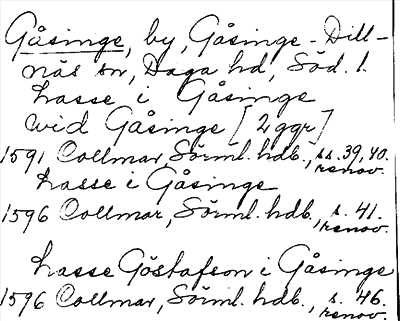 Gåsinge, by, Gåsinge-Dill-
näs sn, Daga hd, Söd. l.
hasse i Gåsinge
wid Gåsinge [2 ggr]
1591 Collmar, Sörml. hdb., ss. 39, 40.
renov.
hasse i Gåsinge
1596 Collmar, Sörml. hdb., s. 41.
renov.
hasse Göstafson i Gåsinge
1596 Collmar, Sörml. hdb., s. 46.
renov.